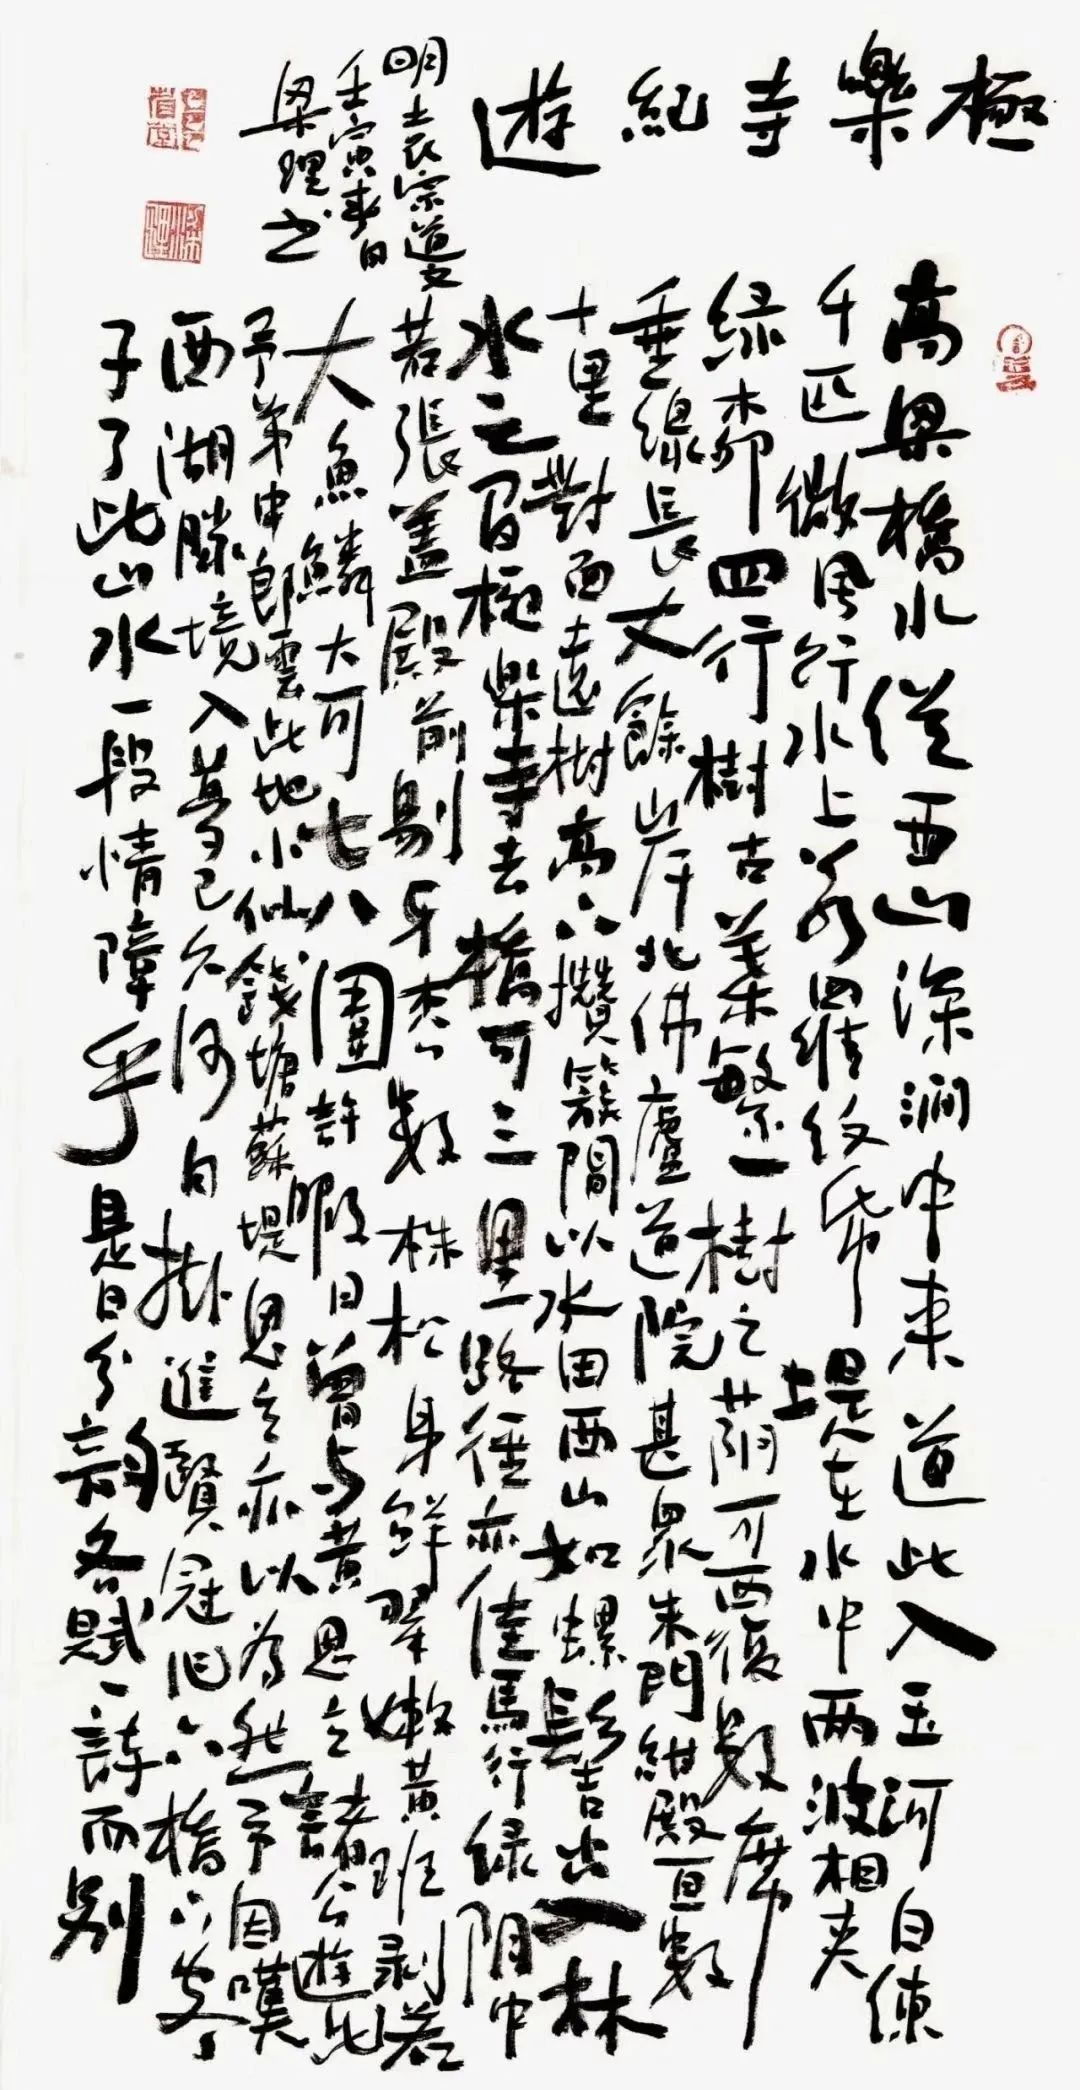 極樂寺紀遊
高梁橋水從西山深澗中来道此入玉河白練
千匹微風行水上若羅紋紙堤在水中兩波相夾
緑柳四行樹古葉繁一樹之蔭可覆數席
垂線長丈餘岸北佛廬道院甚眾朱門紺殿亘數
十里對面遠樹高下攢簇間以水田西山如螺髻出入林
水之間極樂寺去橋可三里路徑亦佳馬行緑陰中
若張蓋殿前剔牙松數株松身鮮翠嫩黄班剥若
大魚鱗大可七八圍許暇日曾与黄思立諸公遊此
予弟中郎雲此地小似錢塘蘇堤思立亦以為然予因嘆
西湖勝境入夢已久何日掛進賢冠作六橋下客
子了此山水一段情障乎是日分韻各賦一詩而别
明袁宗道文
壬寅春日
梁理书
梁理